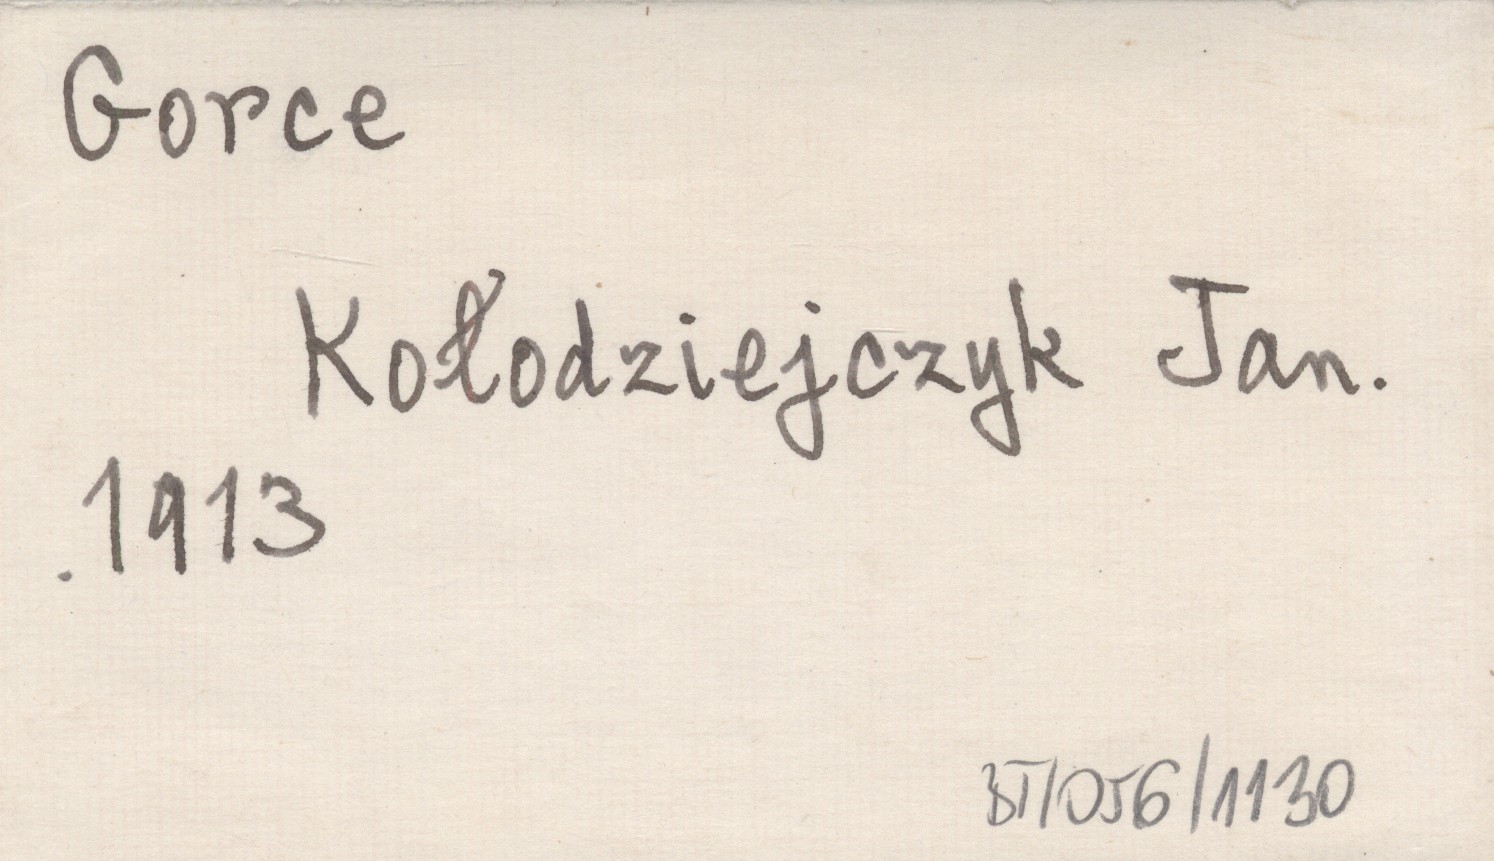 Gorce
Kołodziejczyk Jan.
.1913
BT/056/1130